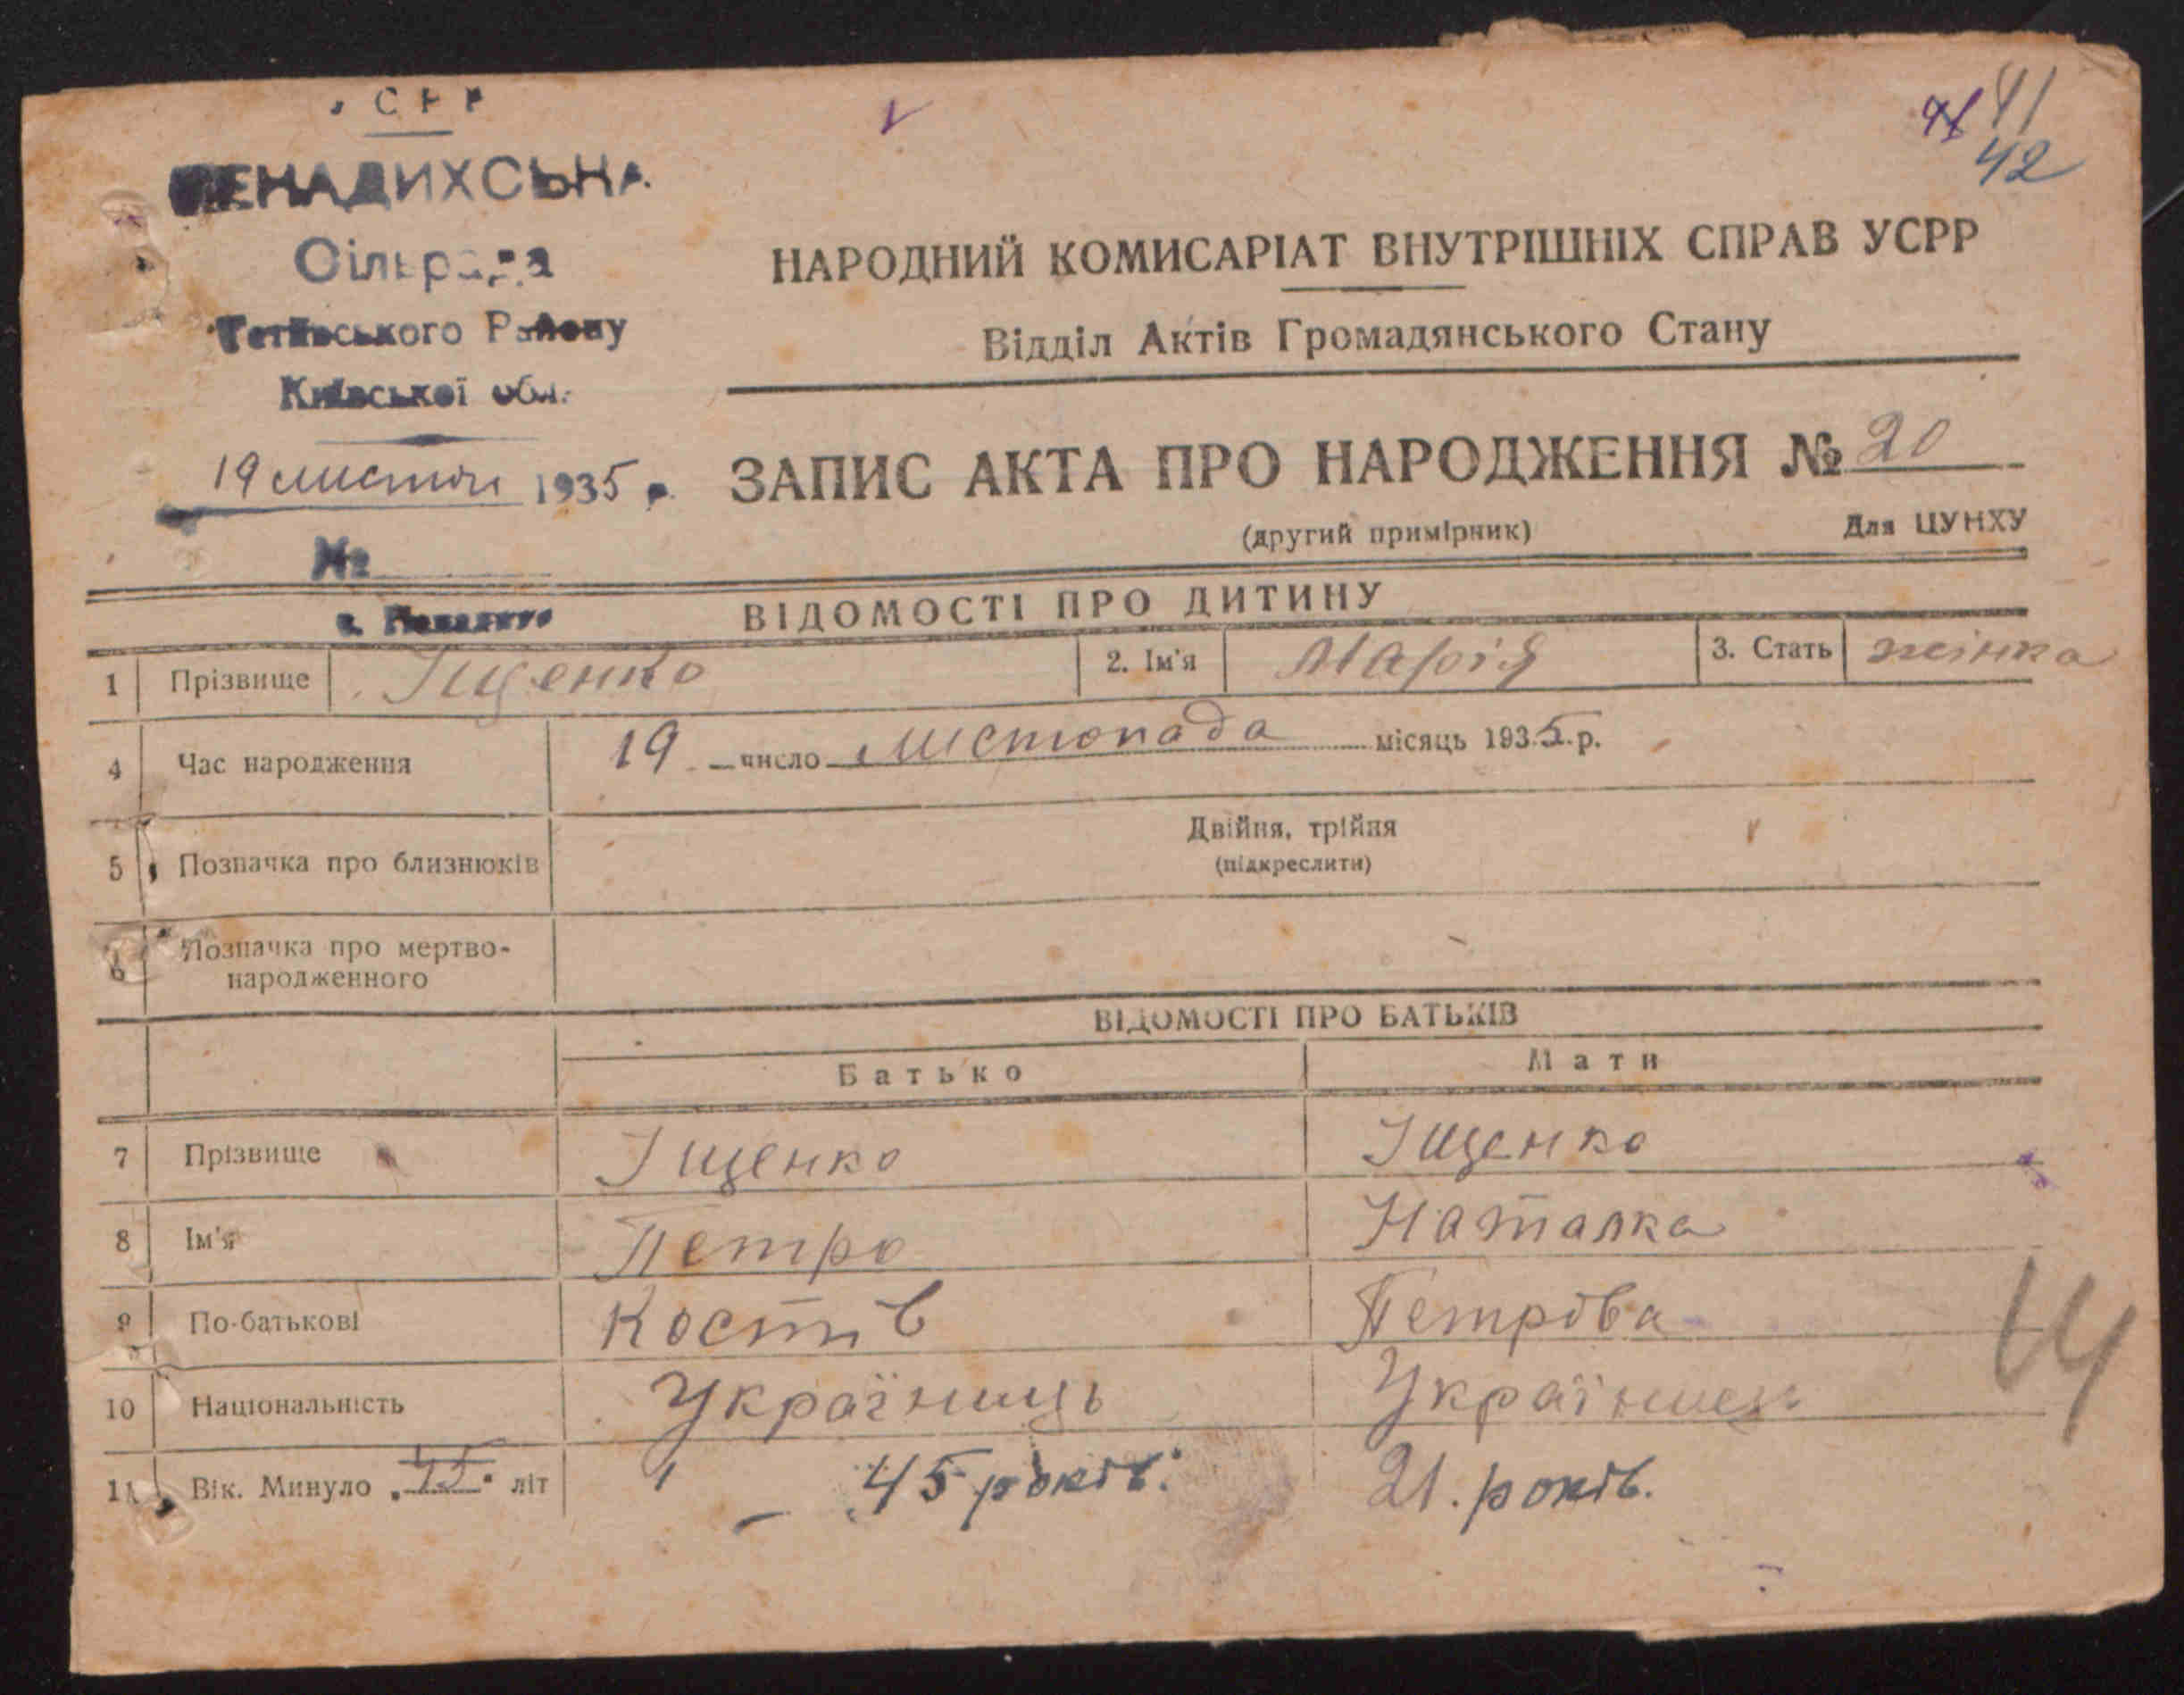 УСРР
ПЕНАДИХСЬКА
Сільрада
Тетіївського Району
Київської обл.
19 листоп 1935 р.
№
41
42
НАРОДНИЙ КОМИСАРІАТ ВНУТРІШНІХ СПРАВ УСРР
Відділ Актів Громадянського Стану
ЗАПИС АКТА ПРО НАРОДЖЕННЯ № 20
(другий примірник) Для ЦУНХУ
ВІДОМОСТІ ПРО ДИТИНУ
1 Прізвище Іщенко 2. Ім'я Марія 3. Стать жінка
4 Час народження 19 число листопада місяць 1935 р.
5 Позначка про близнюків Двійня, трійня
(підкреслити)
6 Позначка про мертво-
народженного
ВІДОМОСТІ ПРО БАТЬКІВ
Батько Мати
7 Прізвище Іщенко Іщенко
8 Ім'я Петро Наталка
9 По-батькові Костів Петрова
10 Національність Україниць Україниць
11 Вік. Минуло 45 літ 45 років. 21. років.
14